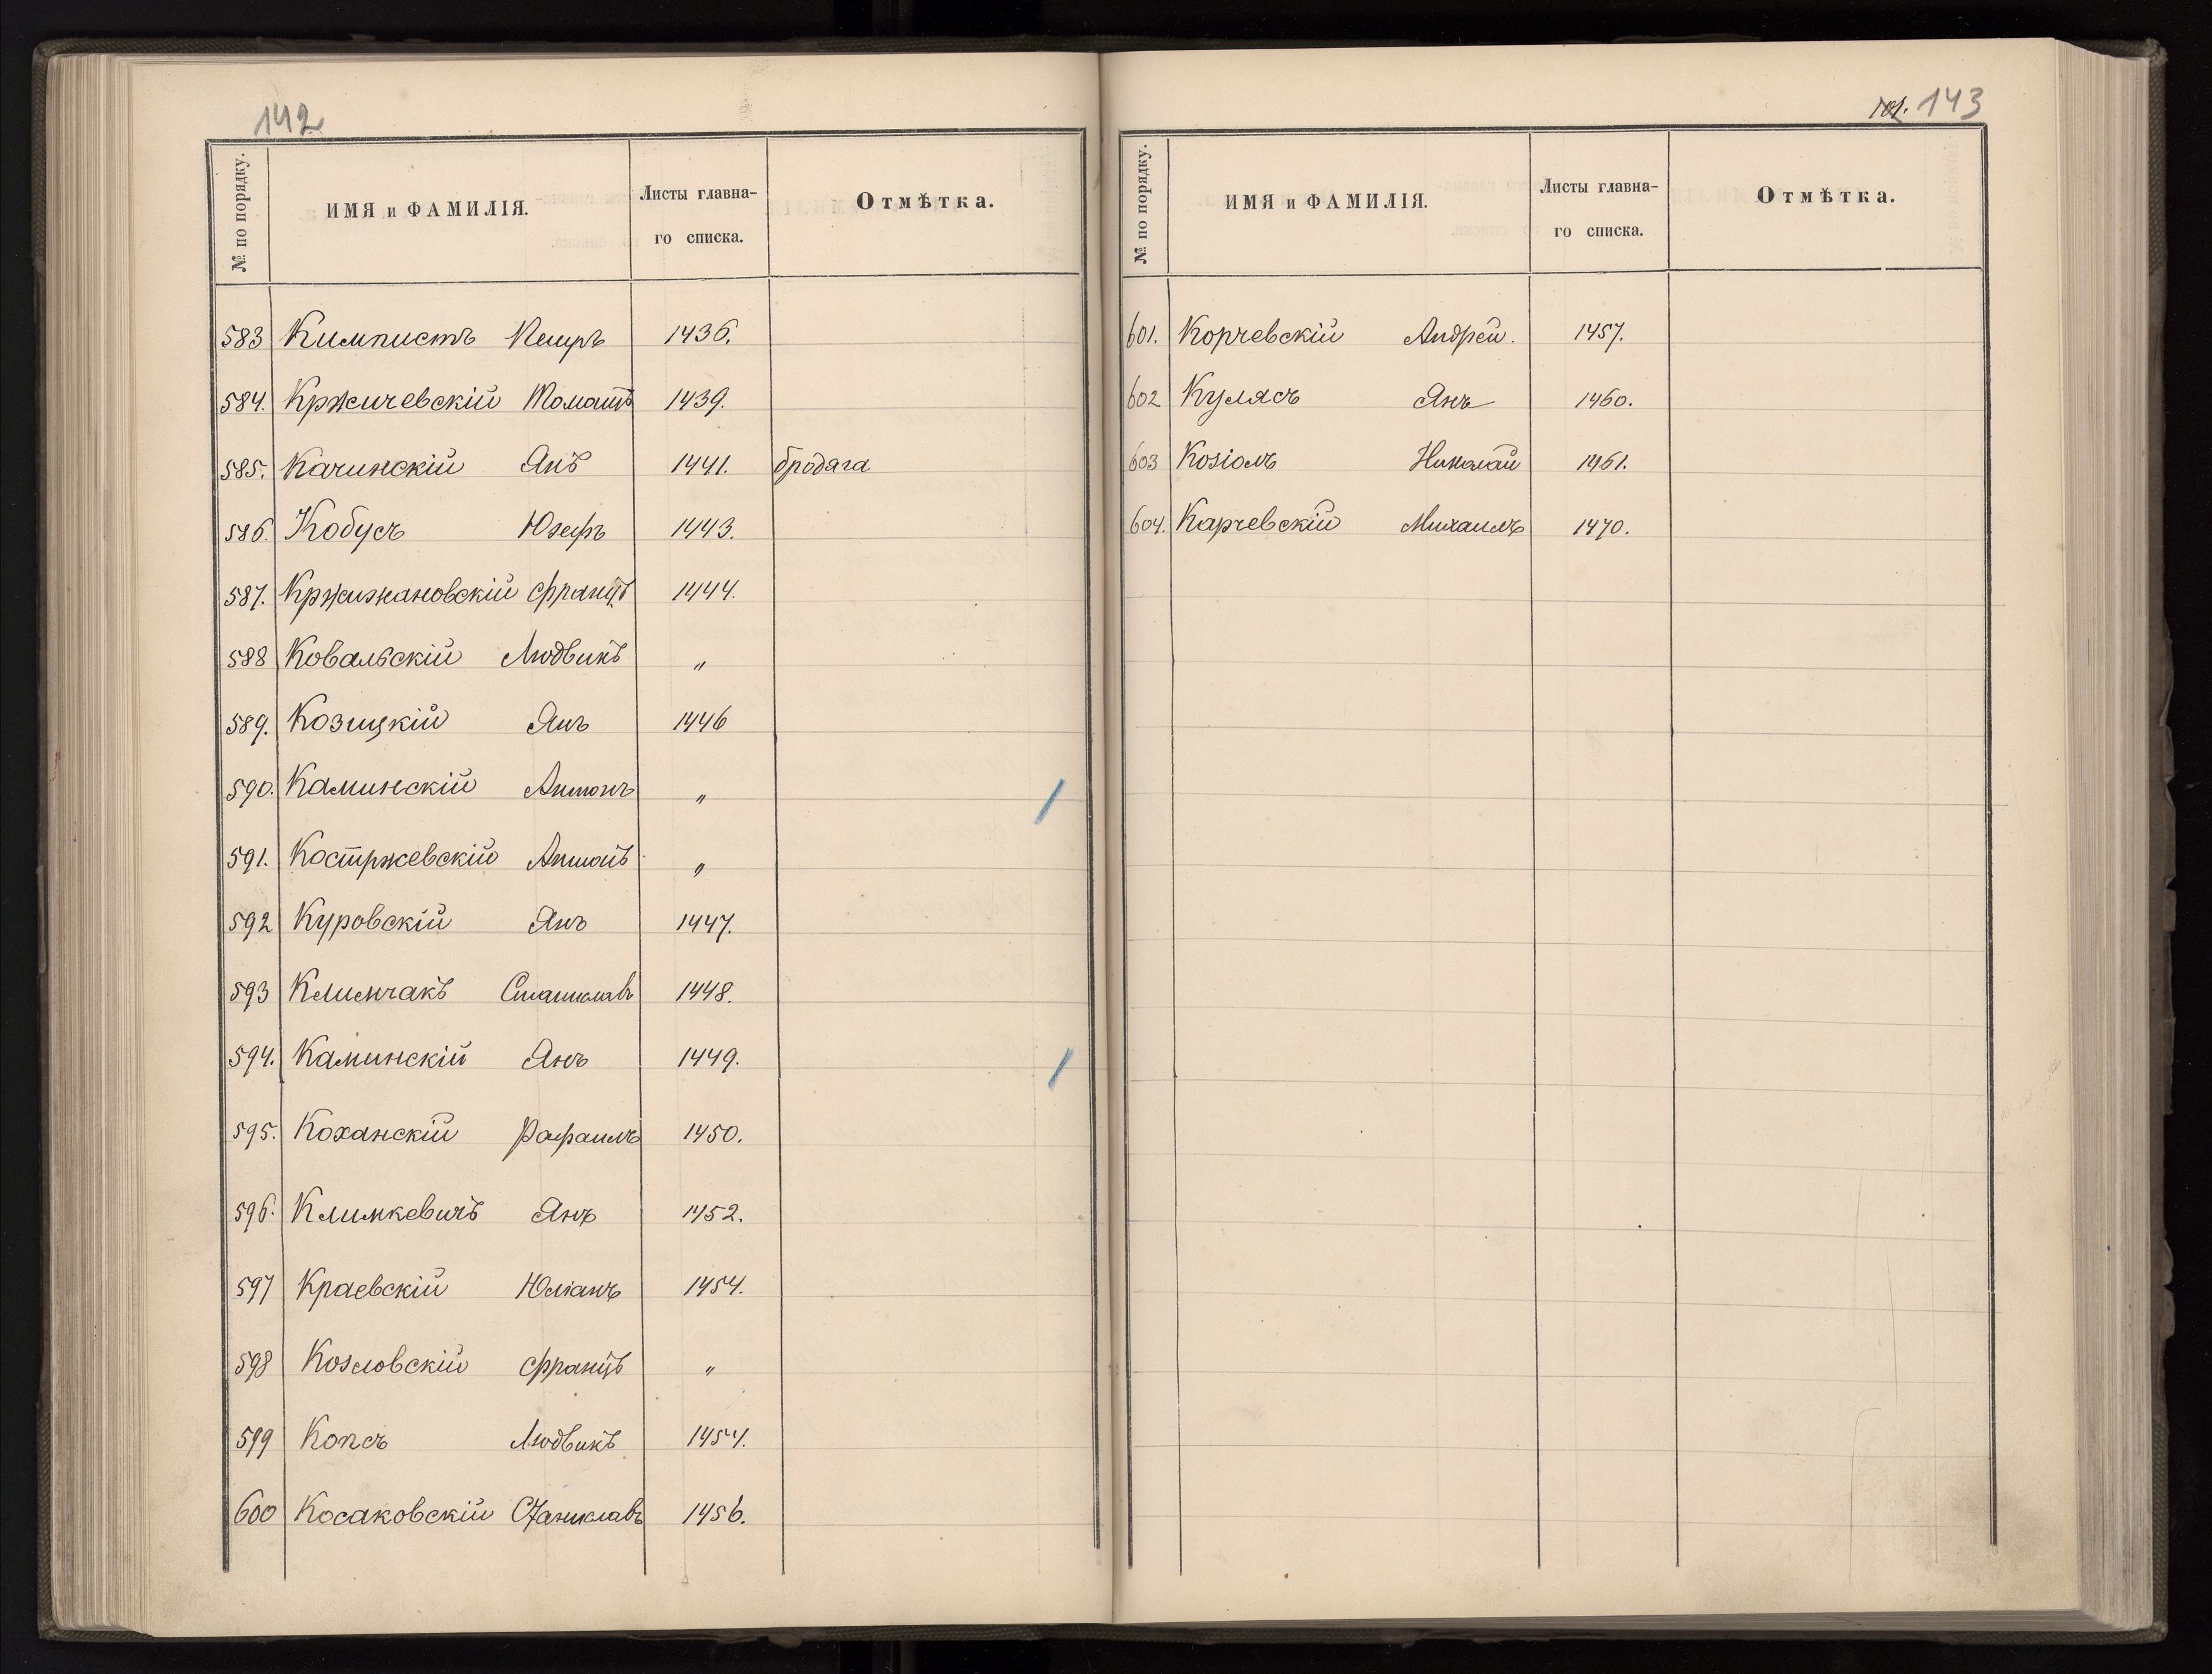 142
№ по порядку. ИМЯ и ФАМИЛІЯ. Листы главна- Отмѣтка.
го списка.
583 Кимпистъ Петръ 1436.
584. Кржичевскій Томашъ 1439.
585. Качинскій Янъ 1441. бродяга
586. Кобусъ Юзефъ 1443.
587. Кржижановскій Францъ 1444.
588 Ковальскій Людвикъ "
589. Козицкій Янъ 1446
590. Каминскій Антонъ "
591. Костржевскій Антонъ "
592 Куровскій Янъ 1447.
593 Климчакъ Станиславъ 1448.
594. Каминскій Янъ 1449.
595. Коханскій Рафаилъ 1450.
596. Климкевичъ Янъ 1452.
597 Краевскій Юліанъ 1454.
598 Козловскій Францъ "
599 Копсъ Людвикъ 1454.
600 Косаковскій Станиславъ 1456.
143
№ по порядку. ИМЯ и ФАМИЛІЯ. Листы главна- Отмѣтка.
го списка.
601. Корчевскій Андрей. 1457.
602 Кулясъ Янъ 1460.
603 Козіолъ Николай 1461.
604. Карчевскій Михаилъ 1470.